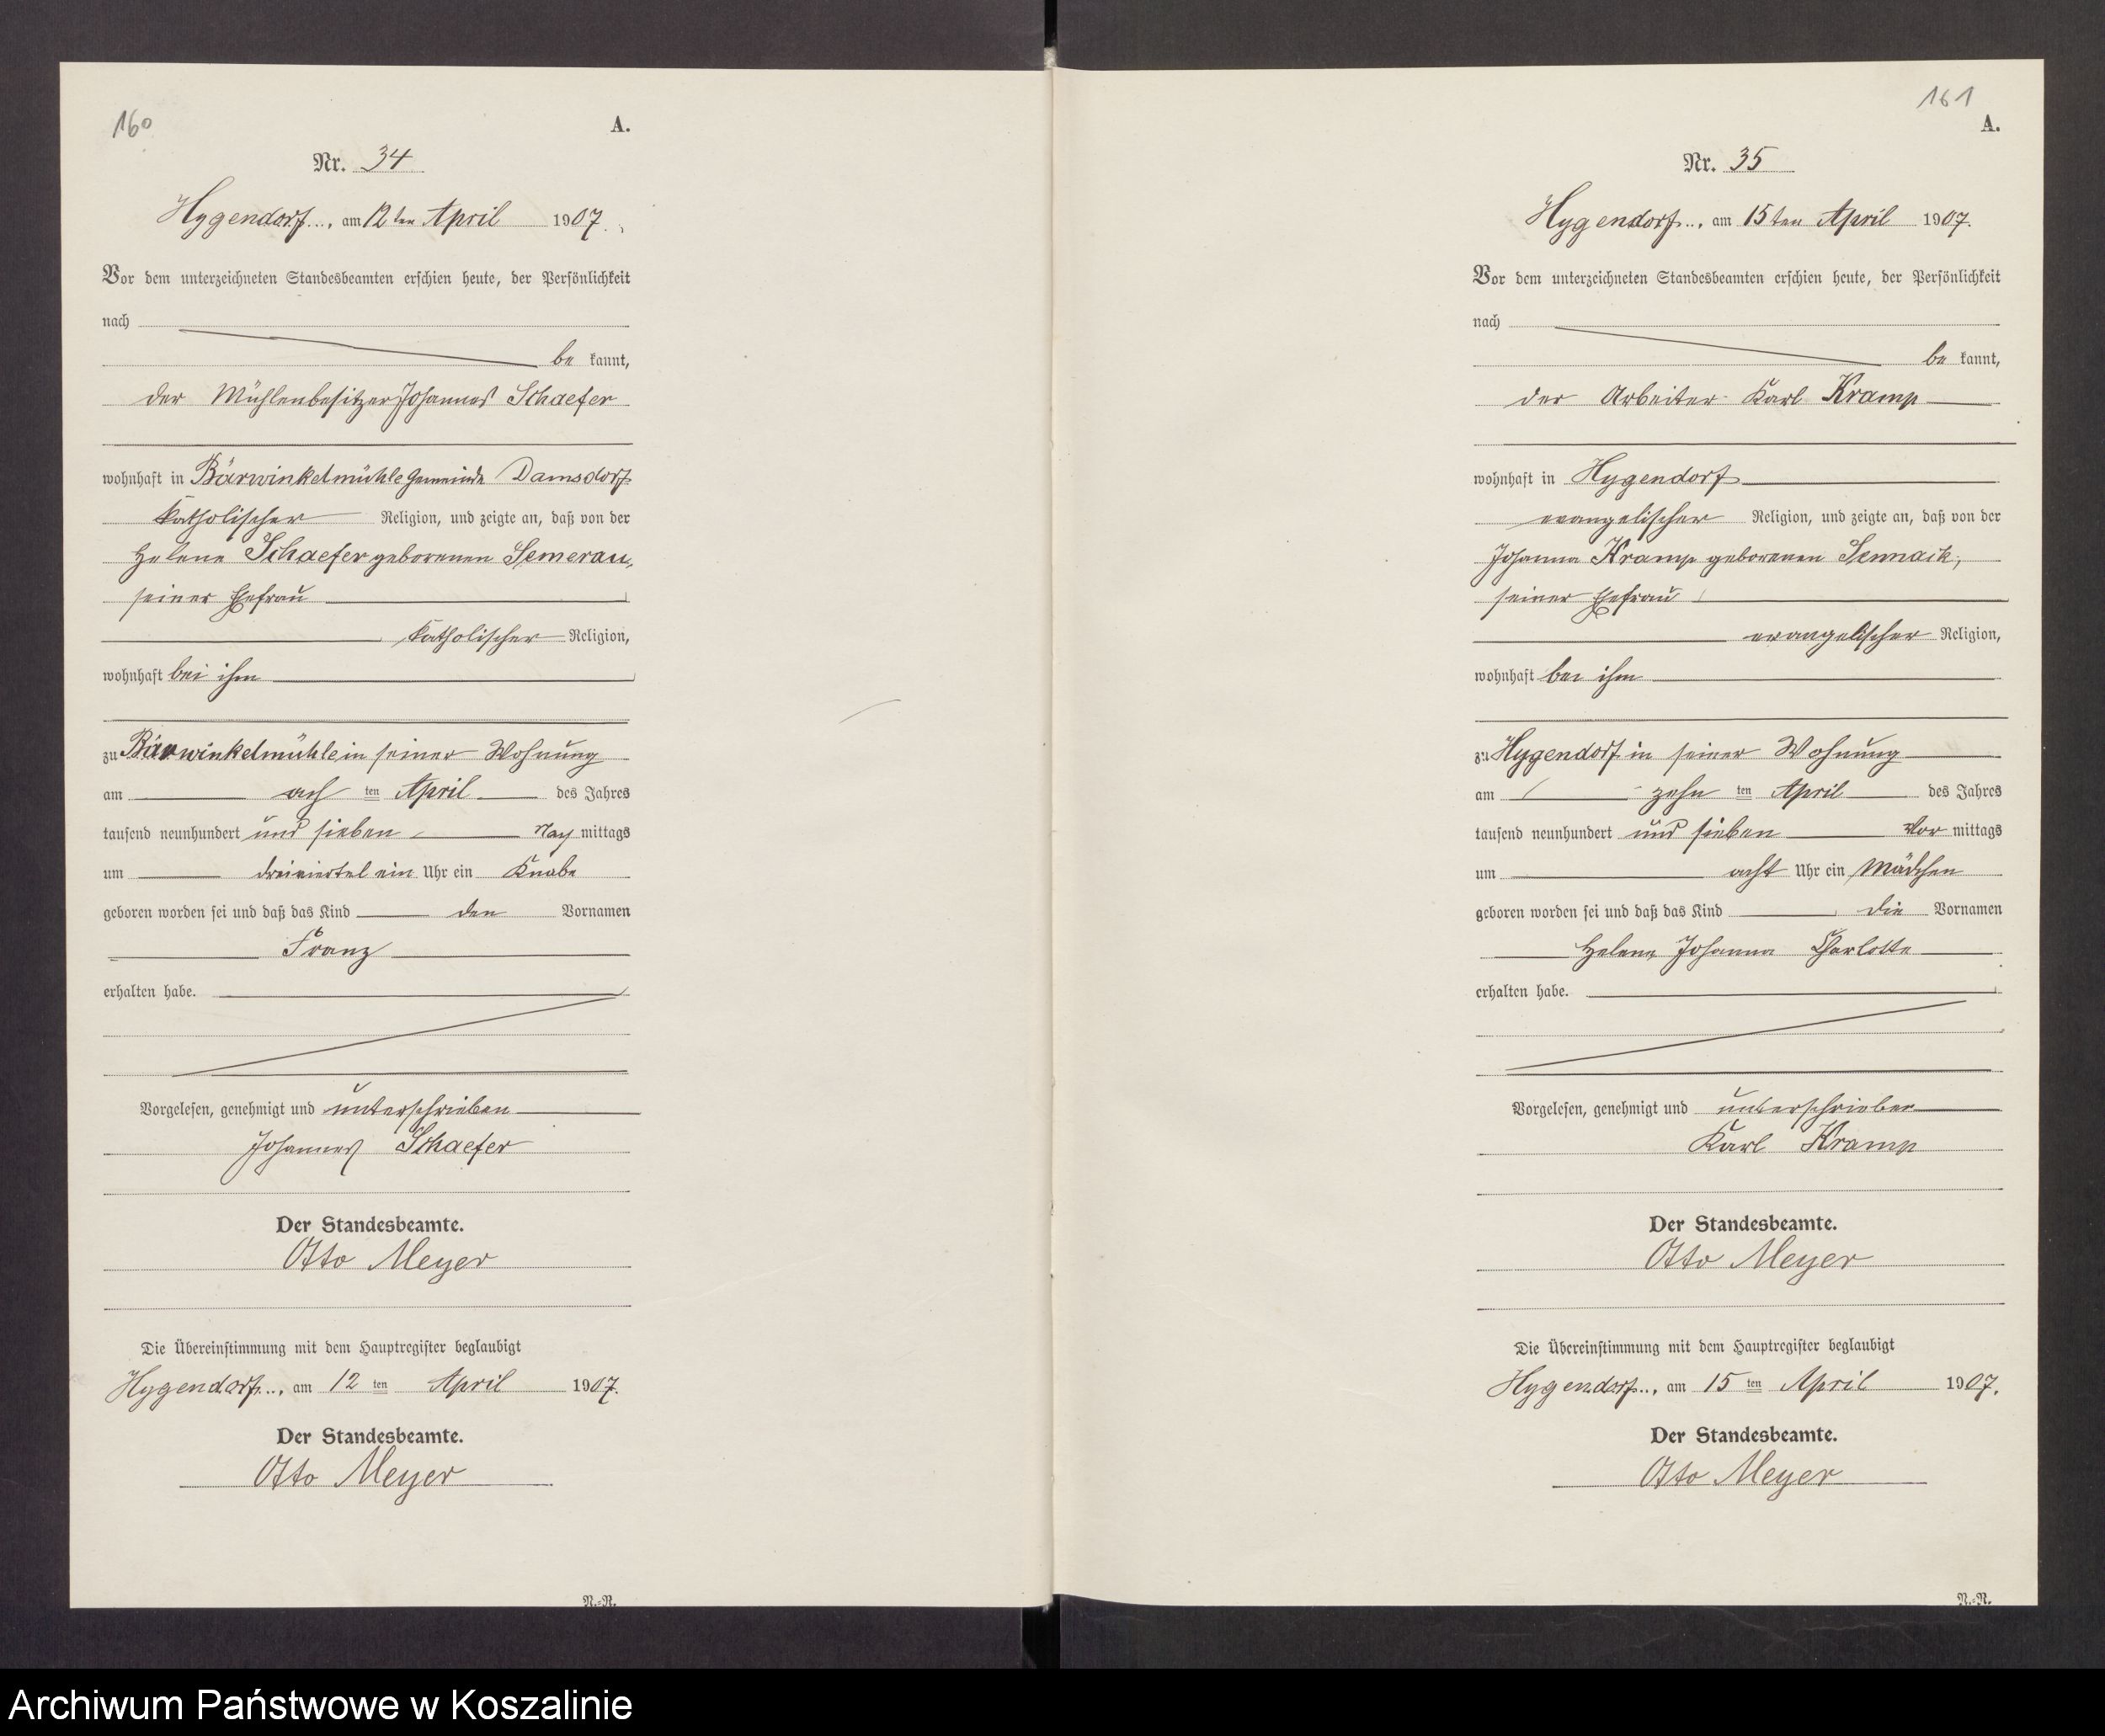 160
A.
Nr. 34
Hygendorf..., am 12ten April 1907.
Vor dem unterzeichneten Standesbeamten erschien heute, der Persönlichkeit
nach
be kannt,
der Mühlenbesitzer Johannes Schaefer
wohnhaft in Bärwinkelmühle Gemeinde Damsdorf
katholischer Religion, und zeigte an, daß von der
Helene Schaefer geborenen Semerau,
seiner Ehefrau
katholischer Religion,
wohnhaft bei ihm
zu Bärwinkelmühle in seiner Wohnung
am ach ten April des Jahres
tausend neunhundert und sieben Nach mittags
um dreiviertel ein Uhr ein Knabe
geboren worden sei und daß das Kind den Vornamen
Franz
erhalten habe.
Vorgelesen, genehmigt und unterschrieben
Johannes Schaefer
Der Standesbeamte.
Otto Meyer
Die Übereinstimmung mit dem Hauptregister beglaubigt
Hygendorf..., am 12 ten April 1907.
Der Standesbeamte.
Otto Meyer
N.=R.
161
A.
Nr. 35
Hygendorf..., am 15ten April 1907.
Vor dem unterzeichneten Standesbeamten erschien heute, der Persönlichkeit
nach
be kannt,
der Arbeiter Karl Kramp
wohnhaft in Hygendorf
evangelischer Religion, und zeigte an, daß von der
Johanna Kramp geborenen
seiner Ehefrau
evangelischer Religion,
wohnhaft bei ihm
zu Hygendorf in seiner Wohnung
am zehn ten April des Jahres
tausend neunhundert und sieben Vor mittags
um acht Uhr ein Mädchen
geboren worden sei und daß das Kind die Vornamen
Helene Johanna Charlotte
erhalten habe.
Vorgelesen, genehmigt und unterschrieben
Karl Kramp
Der Standesbeamte.
Otto Meyer
Die Übereinstimmung mit dem Hauptregister beglaubigt
Hygendorf..., am 15 ten April 1907.
Der Standesbeamte.
Otto Meyer
N.=R.
Archiwum Państwowe w Koszalinie